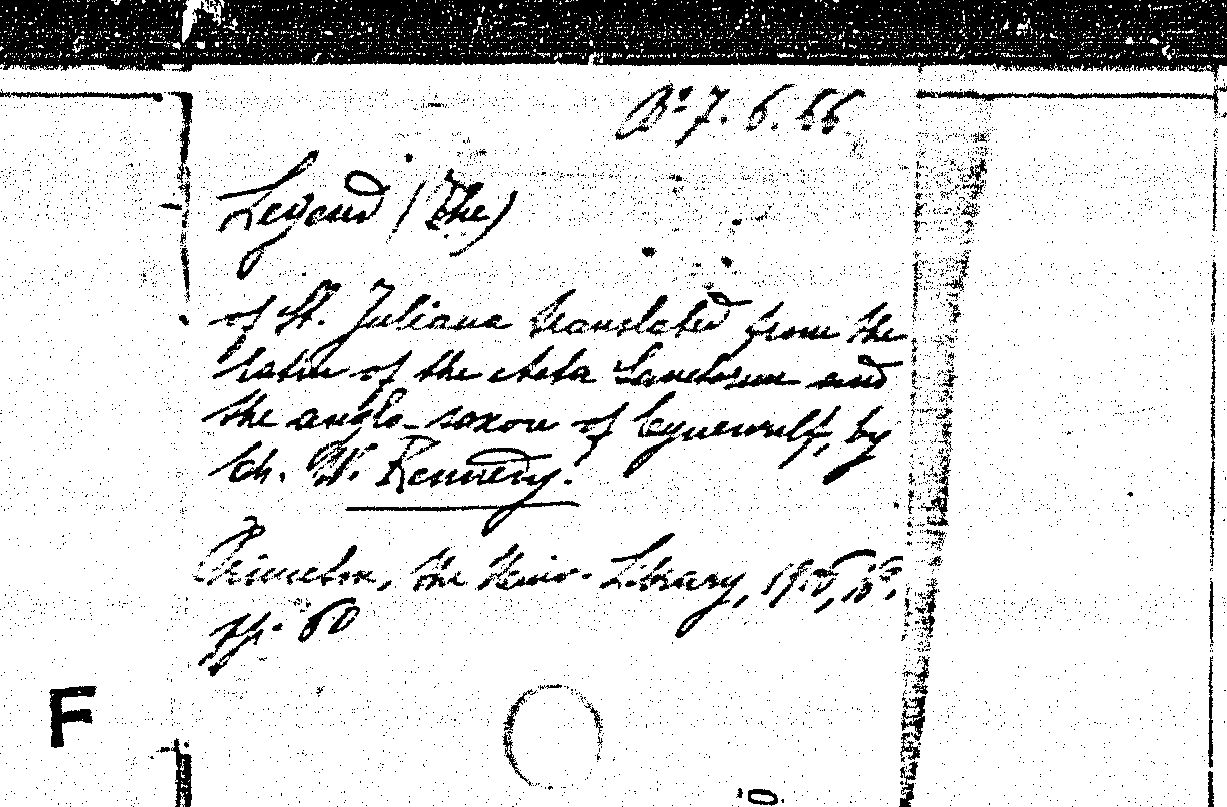 Bº 7. 6. 66
Legend (The)
of St. Juliana translated from the
latin of the Acta Sanctorum and
the anglo-saxon of Cynewulf, by
Ch. W. Kennedy.
Princeton, the Univ. Library, 1906, 16º.
pp. 60
F